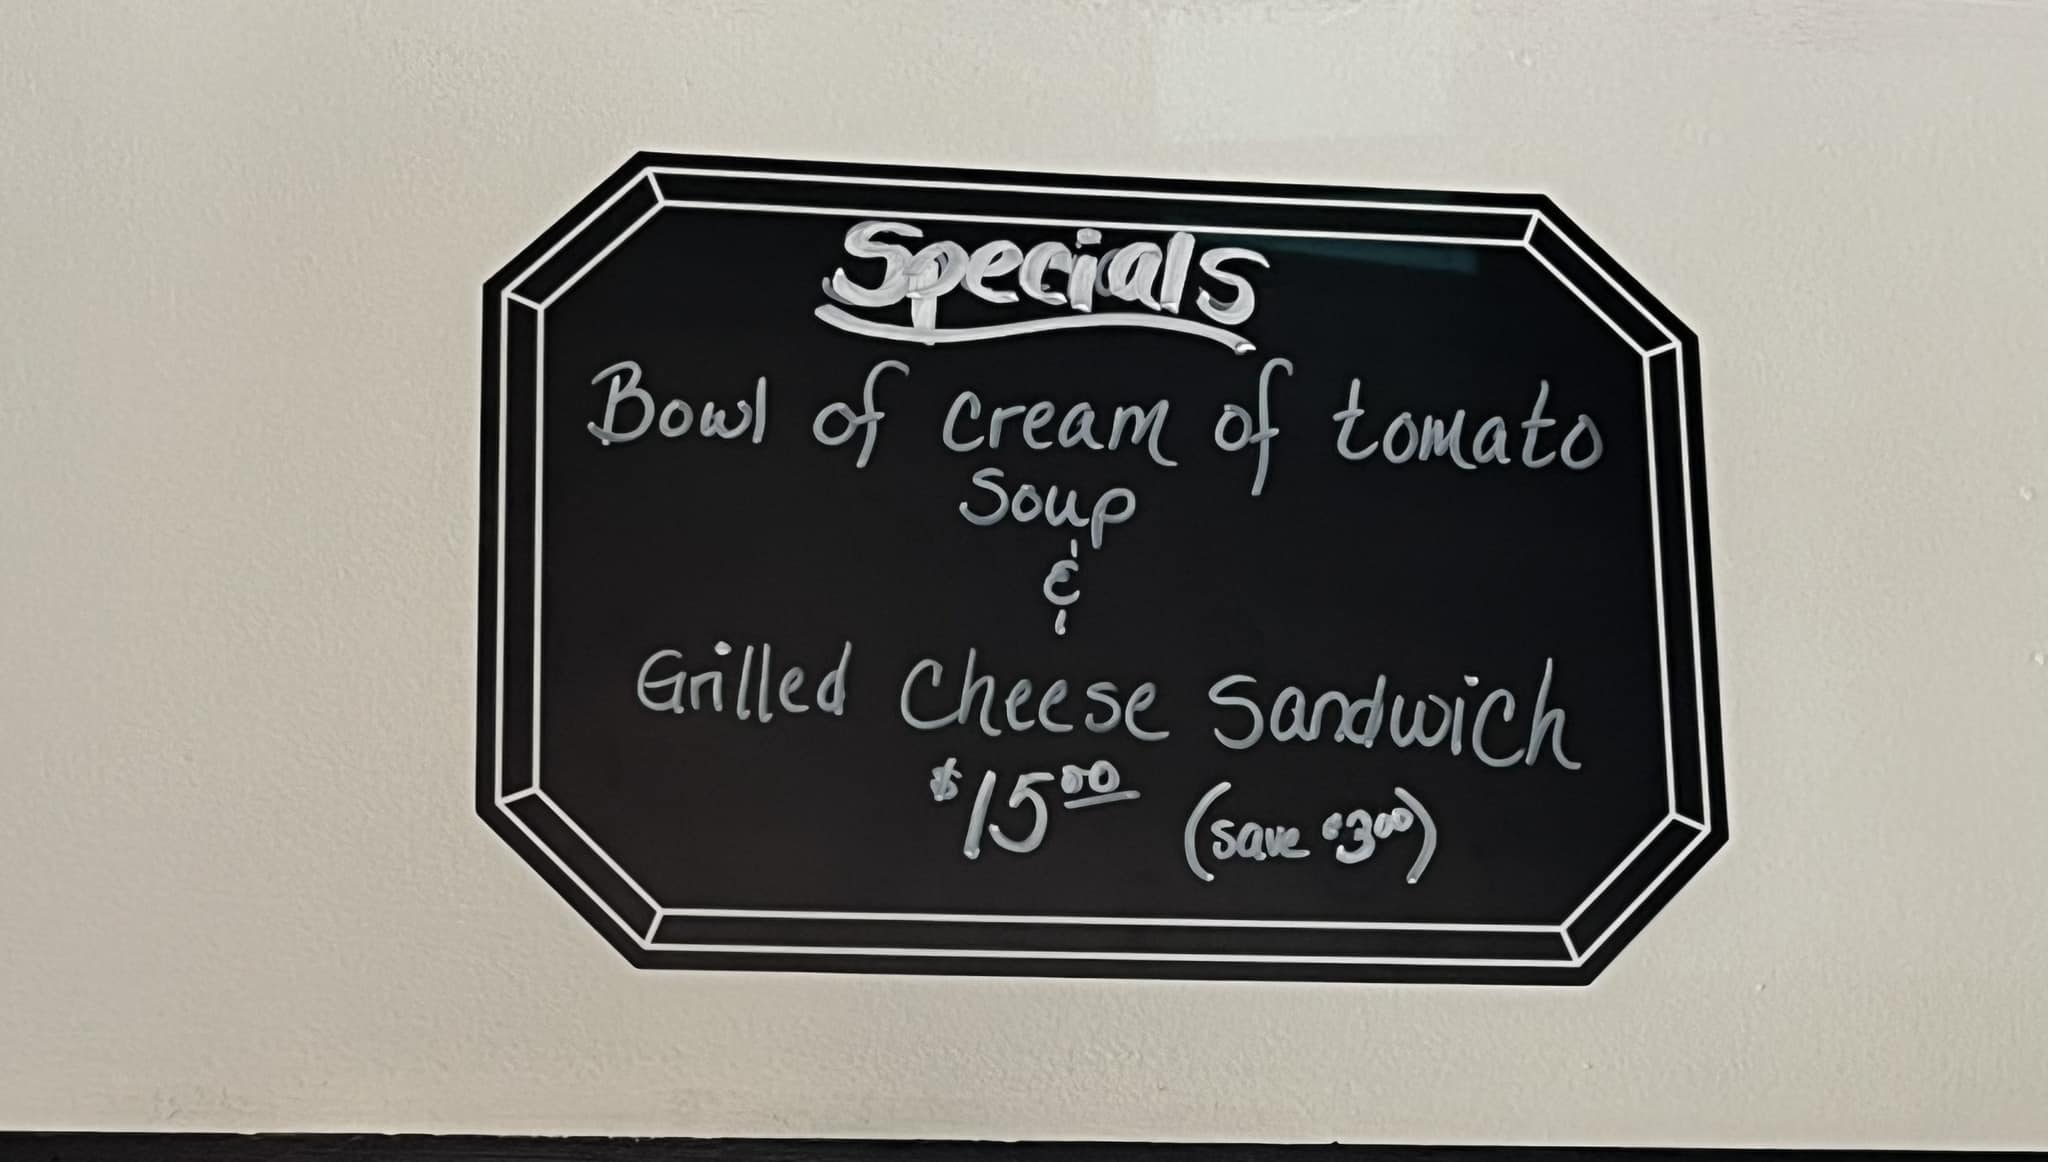 Specials
Bowl of cream of tomato
Soup
&
Grilled Cheese Sandwich
$15.00 (save $3.00)